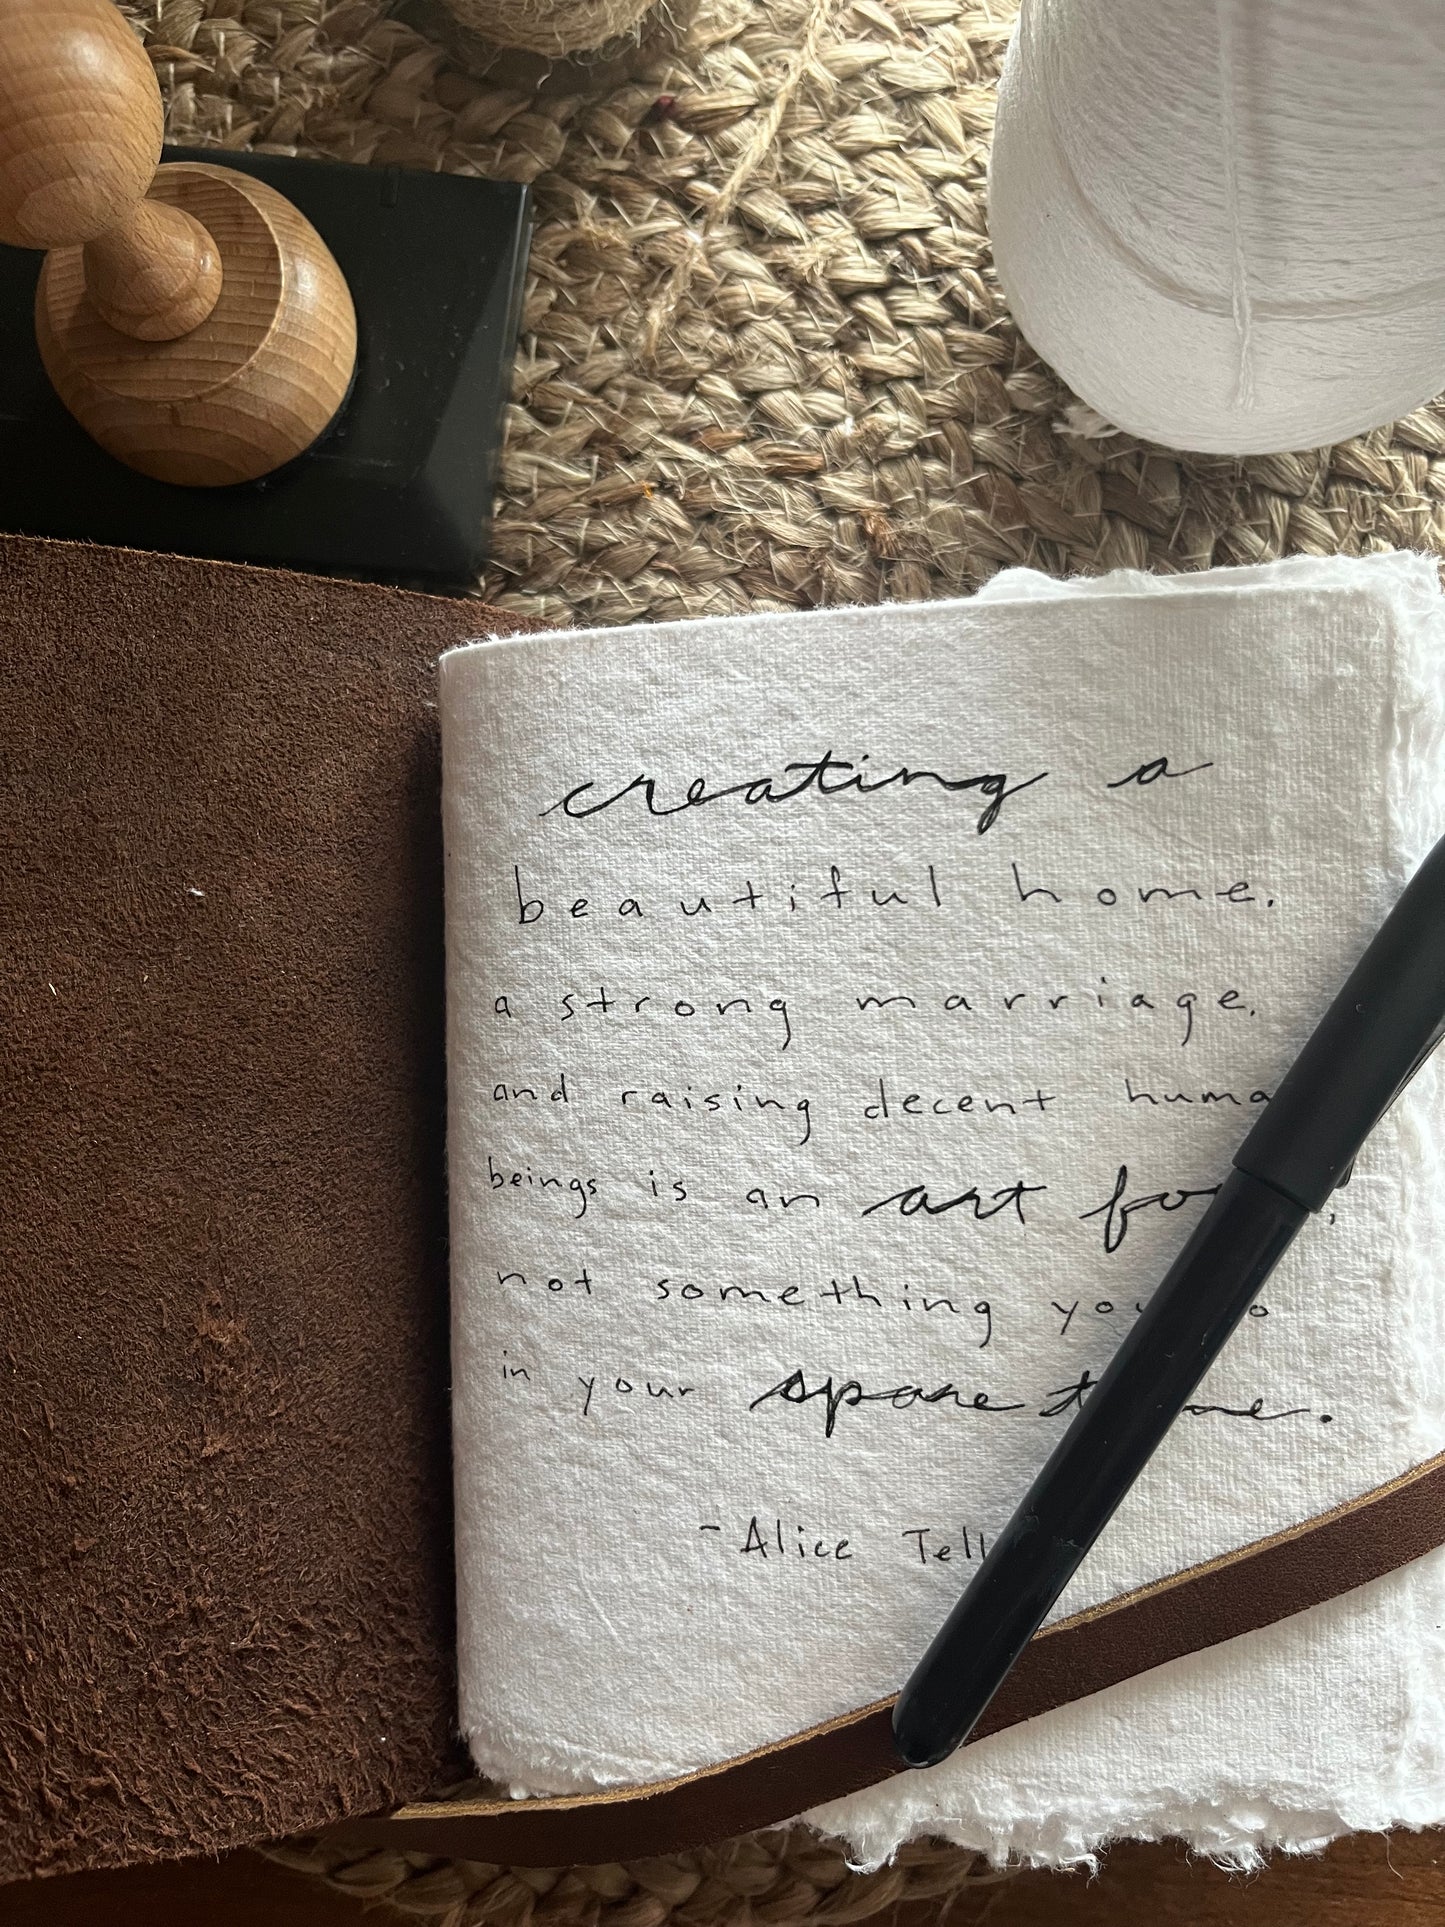 creating a
beautiful home,
a strong marriage,
and raising decent huma
beings is an art fo ,
not something you o
in your spare t me.
-Alice Tell